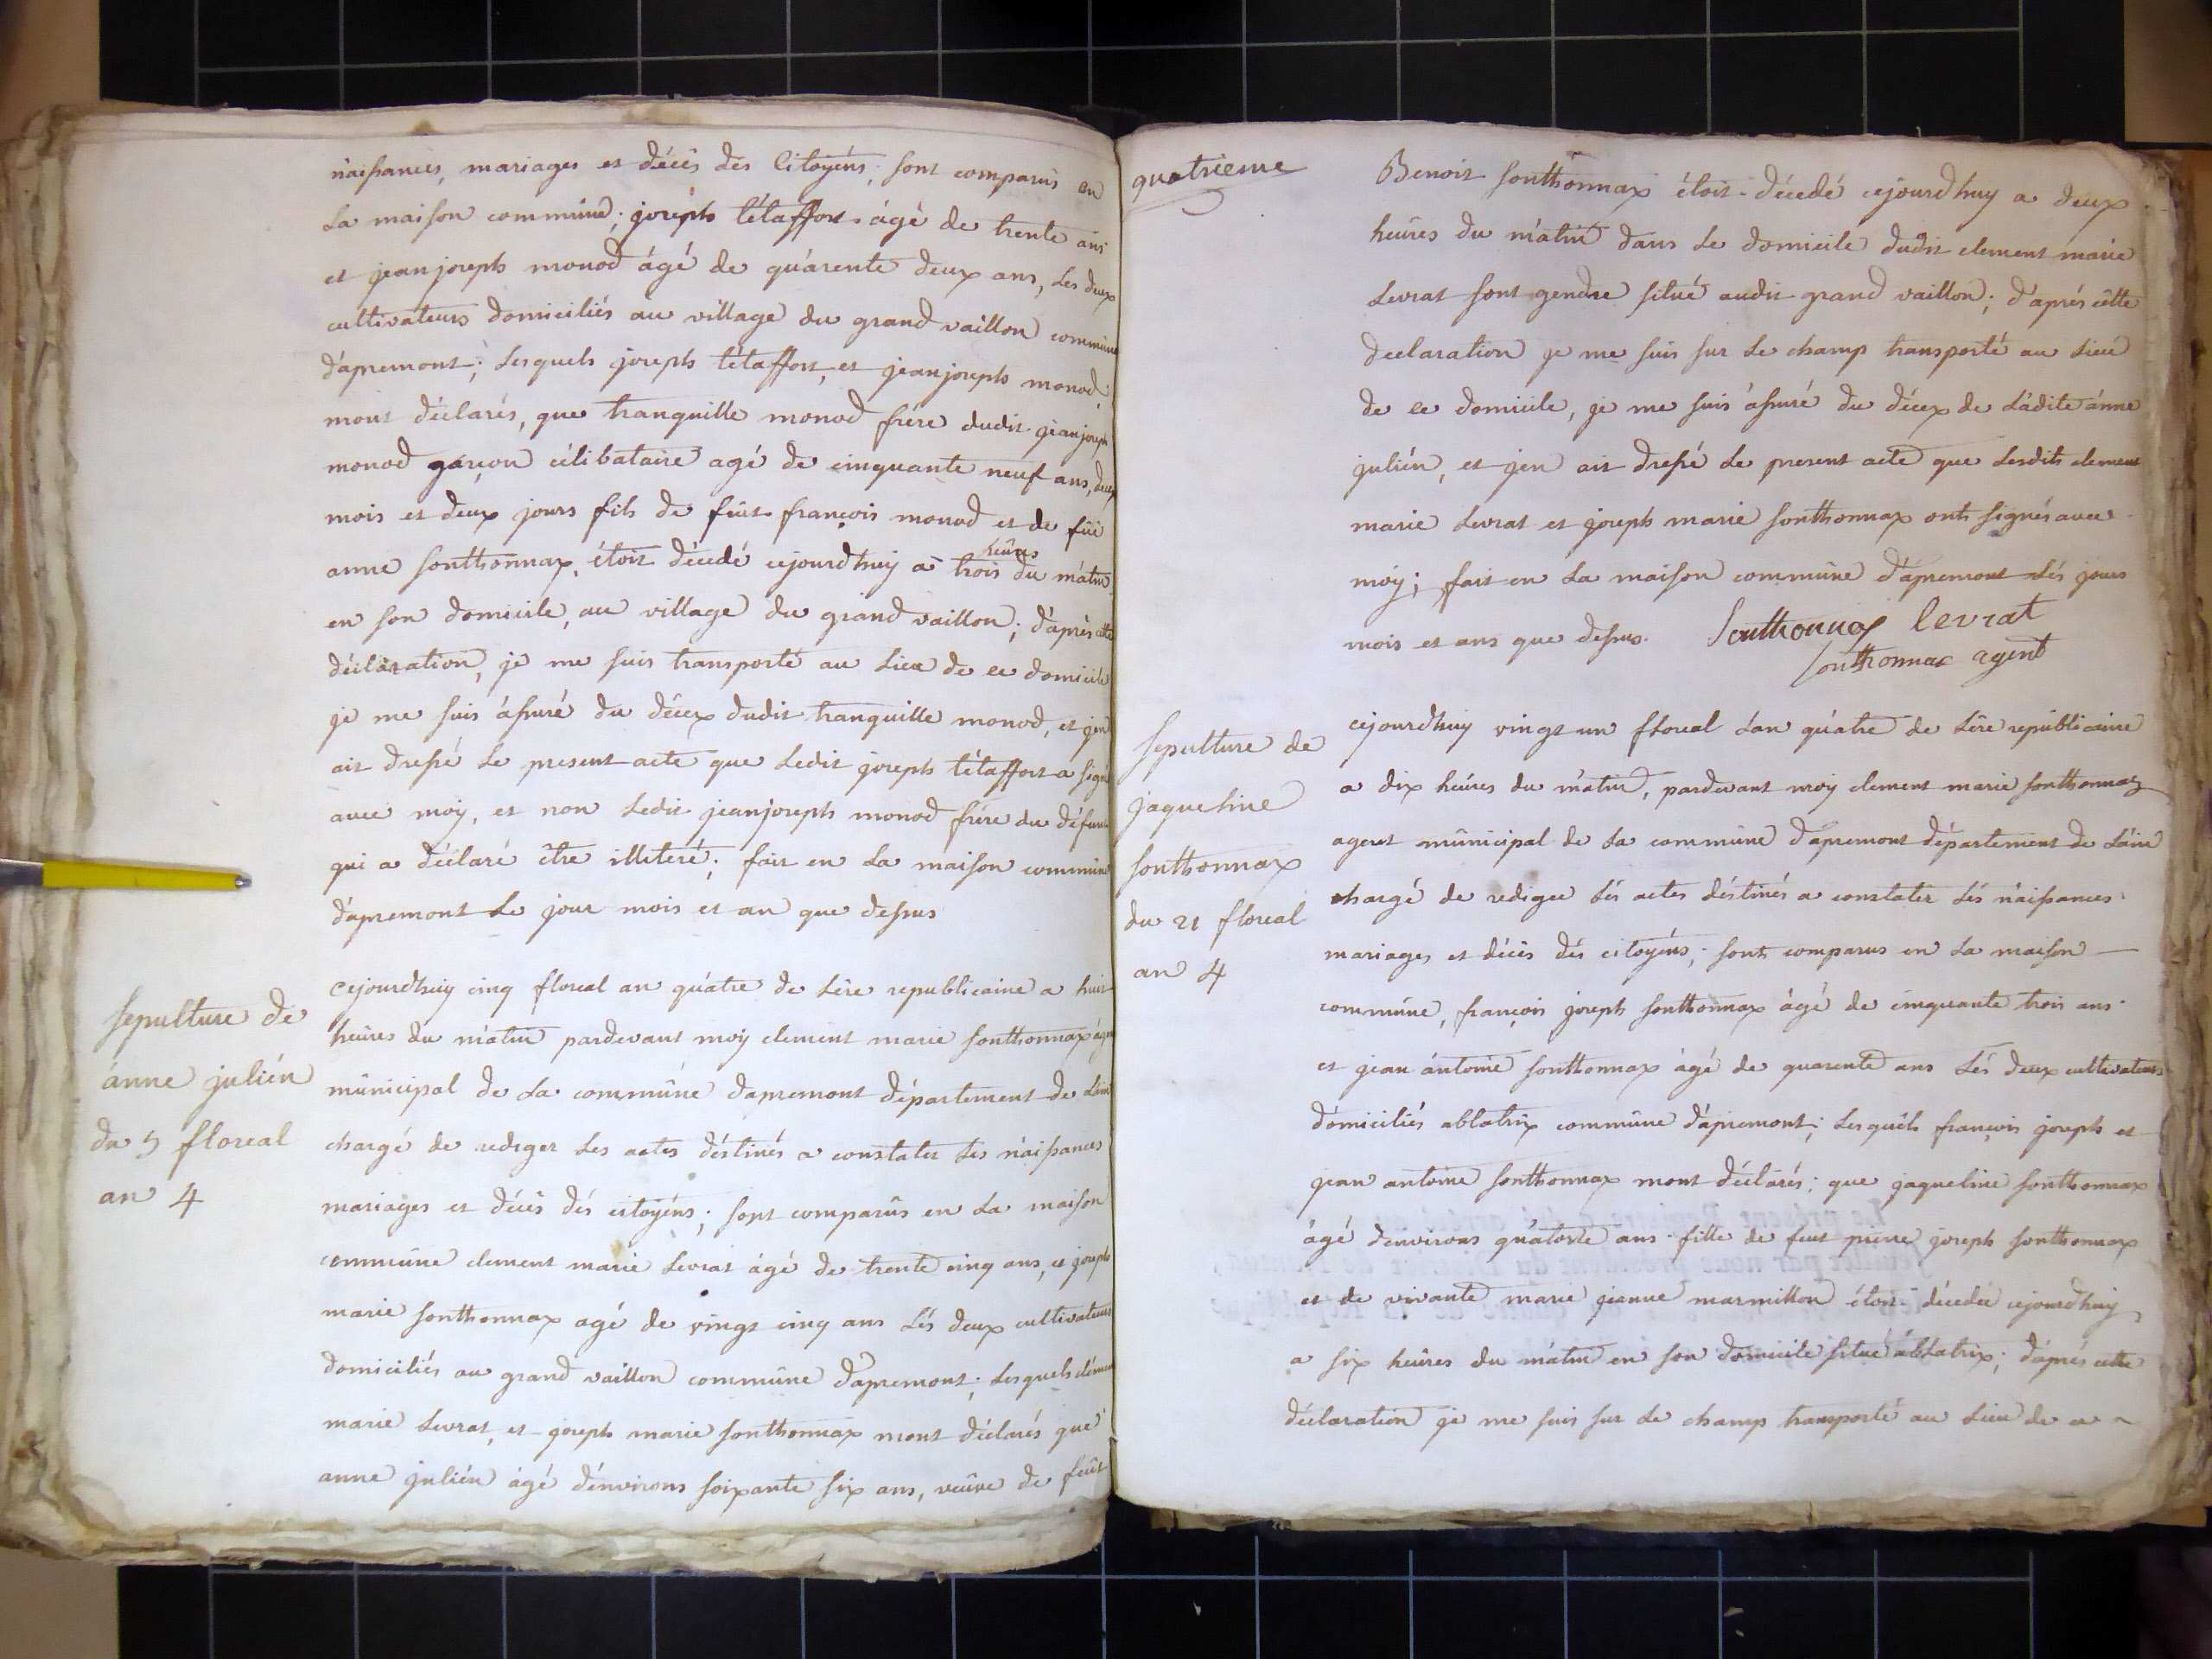 náissances, mariages et décès des Citoyéns; sont comparus en
La maison commune; joseph tétaffort ágé de trente ans
et jean joseph monod ágé de quárente deux ans, Les deux
cultivateurs domiciliés au village du grand vaillon commune
d'apremont; Lesquels joseph tétaffort, et jeanjoseph monod
mont déclarés, que tranquille monod frére dudit jeanjoseph
monod garçon célibataire agé de cinquante neuf ans, deux
mois et deux jours fils de fût françois monod et de füe
anne sonthonnax, étoit décedé cejourdhuy a trois heures du mátin
en son domicile, au village du grand vaillon; d'aprés cette
déclaration, je me suis transporté au Lieu de ce domicile
je me suis ássuré du décex dudit tranquille monod, et jen
ait dressé Le present acte que Ledit joseph tétaffort a signé
avec moy, et non Ledit jeanjoseph monod frére du défunt
qui a déclaré être illiteré; fait en La maison commune
d'apremont Le jour mois et an que dessus
Sepulture de
ánne julién
du 5 floreal
an 4
cejourdhuy cinq floreal an quátre de Lére republicaine a huit
heûres du mátin pardevant moy clement marie sonthonnax ágent
municipal de La commúne dapremont département de Láin
chargé de rediger Les actes déstinés a constater Les náissances
mariages et décès dés citoyéns; sont comparûs en La maison
commune clement marie Levrat ágé de trente cinq ans, et joseph
marie sonthonnax agé de vingt cinq ans Lés deux cultivateurs
domiciliés au grand vaillon commune d'apremont; Lesquels clément
marie Levrat, et joseph marie sonthonnax mont déclarés que
anne julién ágé dénvirons soixante six ans, veúve de feût
quatrieme
Benoit sonthonnax étoit décedé cejourdhuy a deux
heures du mátin dans Le domicile dudit clement marie
Levrat sont gendre situé audit grand vaillon; d'aprés cétte
declaration je me suis sur Le champ transporté au Lieu
de ce domicile, je me suis ássuré du décex de Ládite ánne
julién, et jen ait dressé Le present acte que Lesdits clement
marie Levrat et joseph marie sonthonnax onts signés avec
moy; fait en La maison commûne d'apremont Lés jours
mois et ans que dessus. Sonthonnax levrat
sonthonnax agent
Sepulture de
jaqueline
sonthonnax
du 21 floreal
an 4
cejourdhuy vingt un floreal Lan quátre de Lére repúblicaine
a dix heúres du mátin, pardevant moy clement marie sonthonnax
agent múnicipal de La commune d'apremont département de Láin
chargé de rediger Lés actes déstinés a constater Lés náissances
mariages et décès dés citoyéns; sont comparus en La maison
commúne, françois joseph sonthonnax ágé de cinquante trois ans
et jean ántoine sonthonnax ágé de quarente ans Lés deux cultivateurs
dómiciliés ablatrix commune d'apremont; Lesquels françois joseph et
jean antoine sonthonnax mont déclarés; que jaqueline sonthonnax
ágé denvirons quátorze ans fille de feut pierre joseph sonthonnax
et de vivante marie jeanne marmillon étoit décedée cejourdhuy
a six heúres du mátin en son domicile situé áblatrix; d'aprés cette
déclaration je me suis sur Le champ transporté au Lieu de ce